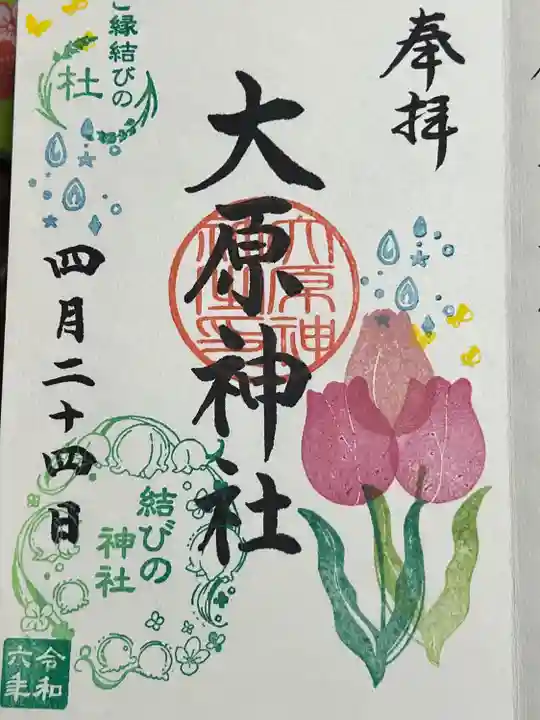 奉拝
大原神社
大原神社之印
四月二十四日
ご縁結びの
杜
結びの
神社
令和
六年